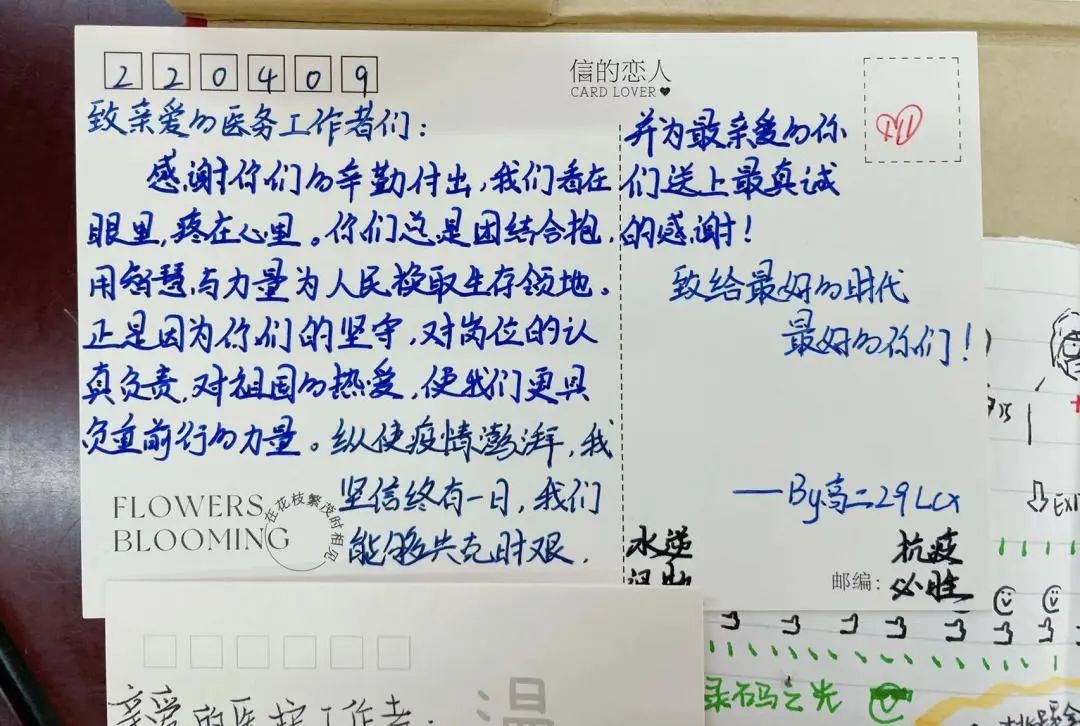 220409
信的恋人
CARD LOVER
致亲爱的医务工作者们：
感谢你们的辛勤付出，我们看在
眼里，疼在心里。你们总是团结合抱，
用智慧与力量为人民换取生存领地。
正是因为你们的坚守，对岗位的认
真负责，对祖国的热爱，使我们更具
负重前行的力量。纵使疫情澎湃，我
坚信终有一日，我们
能够共克时艰，
FLOWERS
BLOOMING
在花枝繁茂时相见
并为最亲爱的你
们送上最真诚
的感谢！
致给最好的时代
最好的你们！
——By高二29Lcx
水逆
抗疫
必胜
邮编：
EXI
亲爱的医护工作者：
温
录码之光